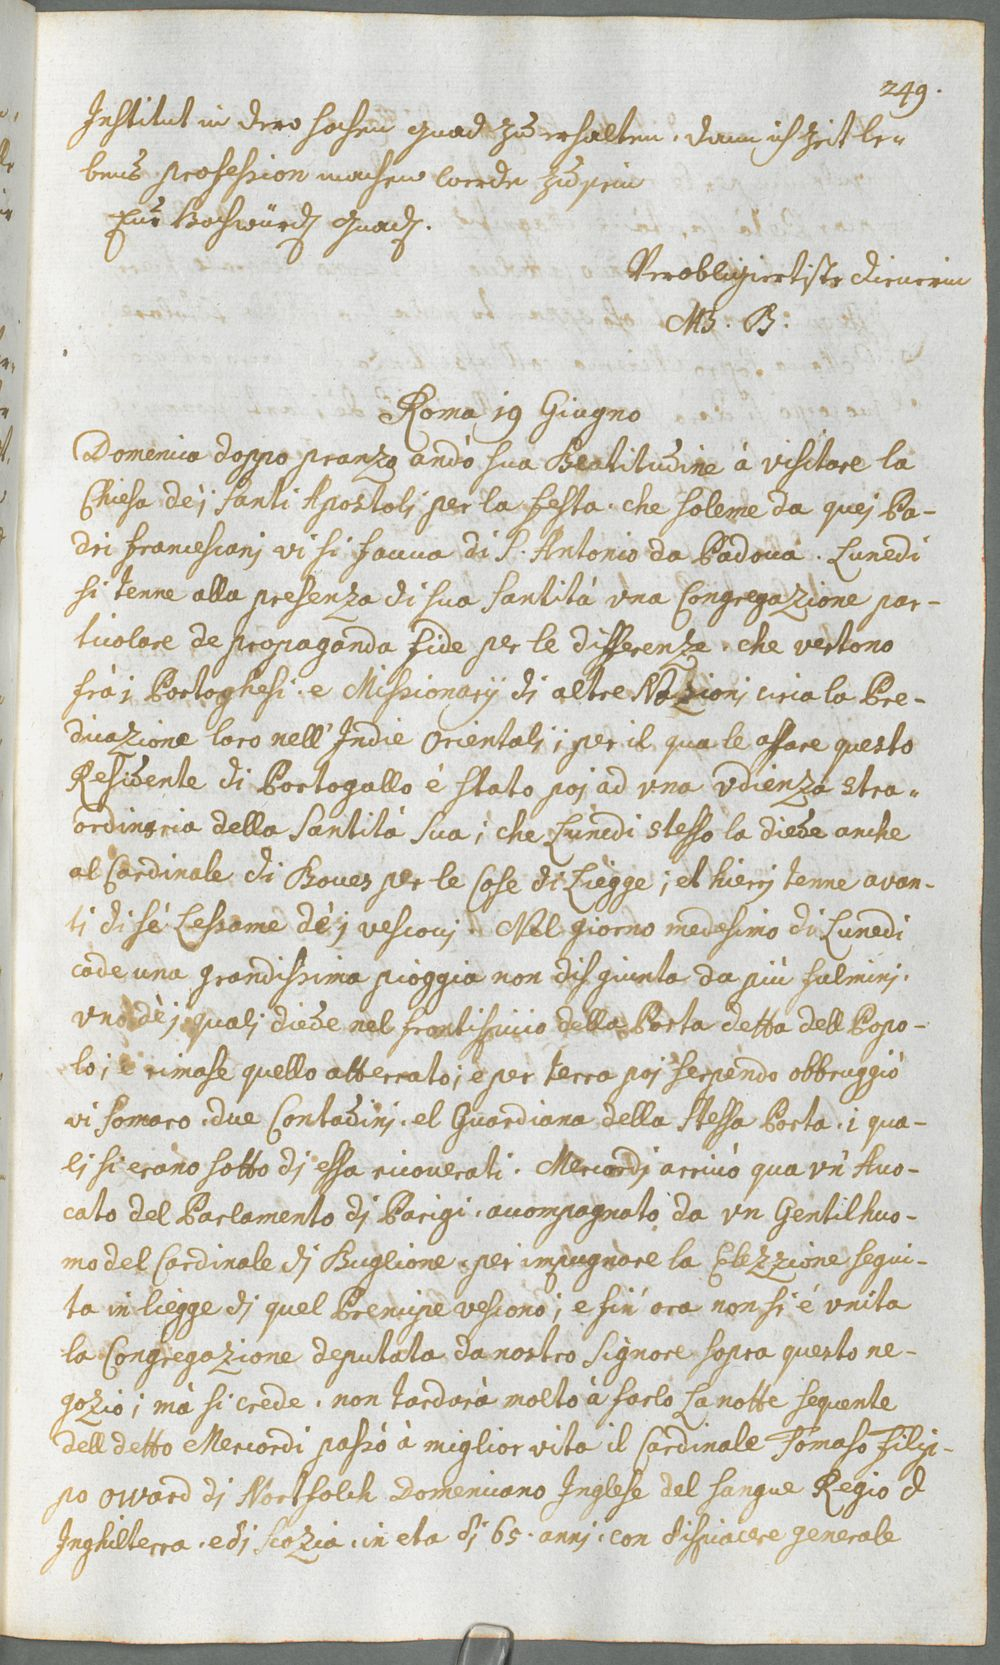 249.
Institut in dero hohen gnad zu erhalten, dann ich Zeit le-
bens profession machen werde zu sein
Eur Hochwürd: Gnad:
Verobligiertiste Dienerin
M. B:
Roma 19 Giugno
Domenica doppo pranzo andò sua Beatitudine à visitare la
Chiesa dè i Santi Apostoli per la festa, che solene da quei Pa-
dri francescani vi si faceva di S. Antonio da Padova. Lunedi
si tenne alla presenza di sua Santità una Congregazione par-
ticolare de propaganda fide per le differenze, che vertono
frà i Portoghesi, e Missionarij di altre Nazioni circa la Pre-
dicazione loro nell' Indie Orientali; per il quale affare questo
Residente di Portogallo è stato poi ad una udienza stra-
ordinaria della Santità Sua; che Lunedi stesso la diede anche
al Cardinale di Boves per le Cose di Liegge; el hieri tenne avan-
ti di sé Lessame dè i vescovi. Nel giorno medesimo di Lunedi
cade una grandissima pioggia non disgiunta da più fulmini,
uno dè i quali diede nel frontispicio della Porta detta dell Popo-
lo; e rimase quello atterrato; e per terra poi serpendo abbruggiò
vi somaro, due Contadini, el Guardiana della stessa Porta, i qua-
li si erano sotto di essa ricoverati. Mercordi arrivò qua un' Avo-
cato del Parlamento di Parigi, accompagnato da un Gentilhuo-
mo del Cardinale di Buglione, per impugnare la Elezzione segui-
ta in Liegge di quel Prencipe vescovo; e fin' ora non si é unita
la Congregazione deputata da nostro Signore sopra questo ne-
gozio; mà si crede, non tardarà molto à farlo La notte sequente
dell detto Mercordi passò à miglior vita il Cardinale Tomaso Filip-
po Oward di Nortfolch Domenicano Inglese del sangue Regio d
Inghilterra, e di Scozia, in eta di 65. anni, con dispiacere generale